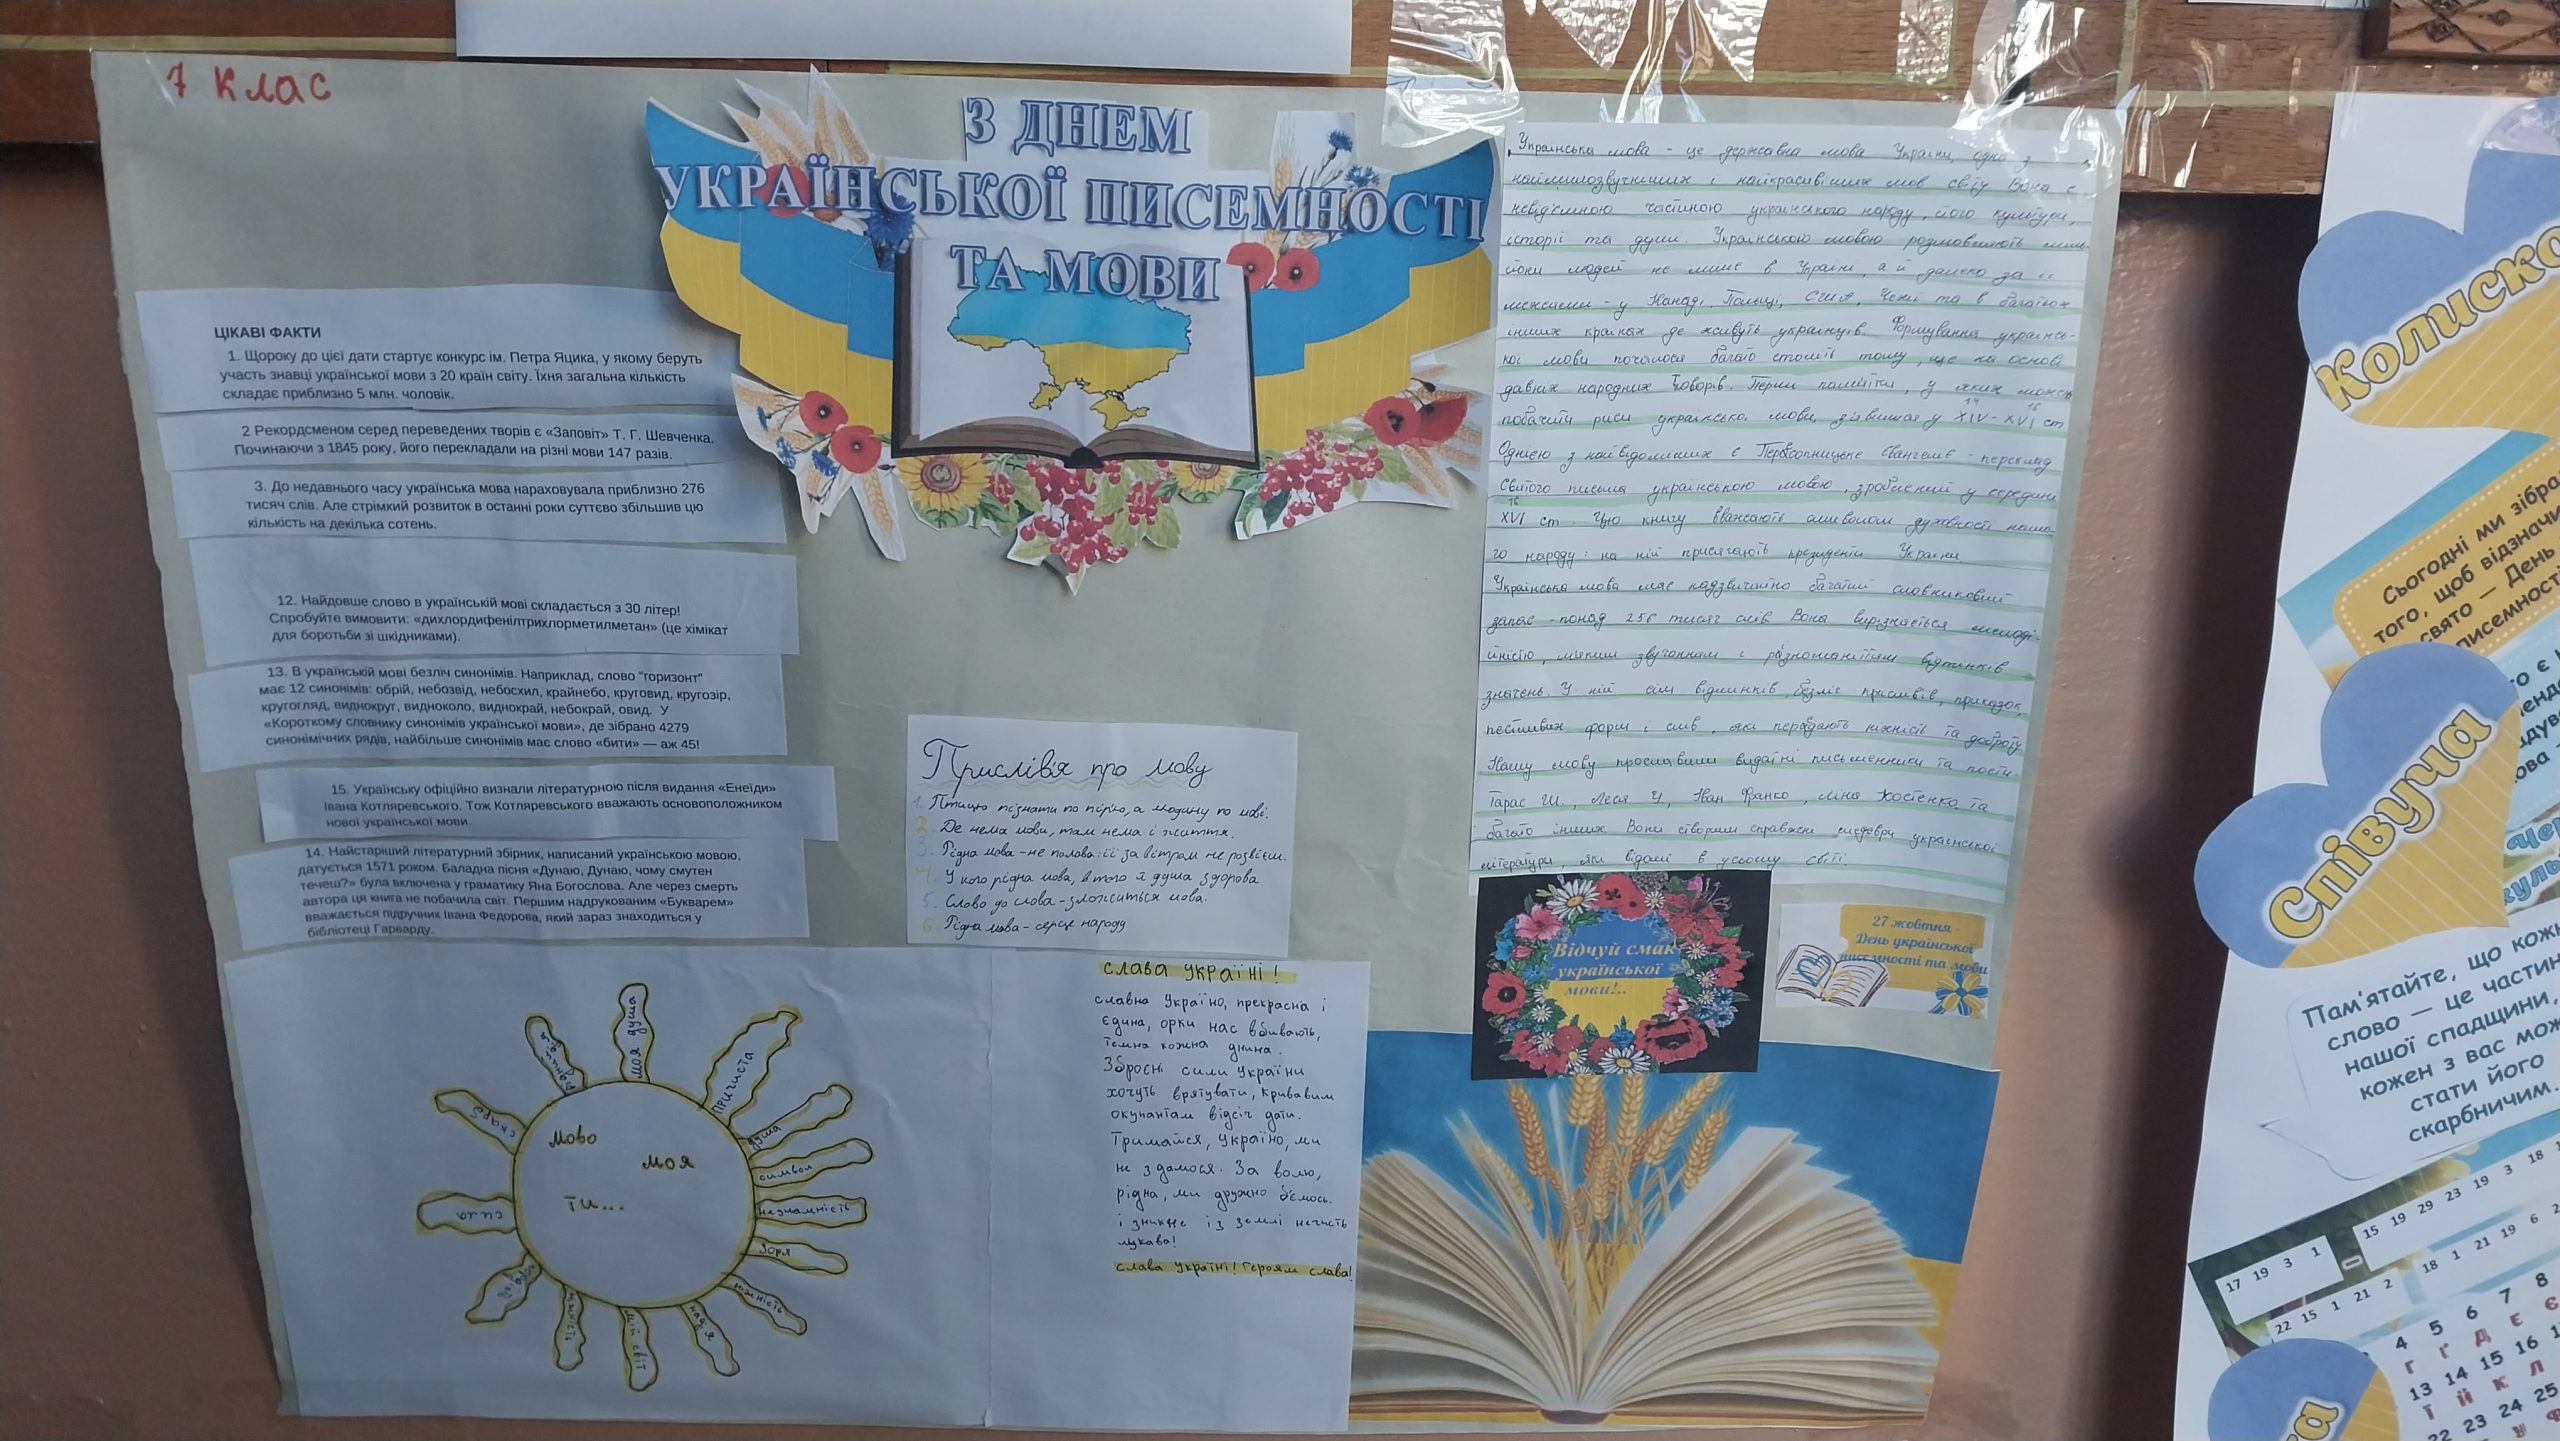 7 клас
З ДНЕМ
УКРАЇНСЬКОЇ ПИСЕМНОСТІ
ТА МОВИ
ЦІКАВІ ФАКТИ
1. Щороку до цієї дати стартує конкурс ім. Петра Яцика, у якому беруть
участь знавці української мови з 20 країн світу. Їхня загальна кількість
складає приблизно 5 млн. чоловік.
2 Рекордсменом серед переведених творів є «Заповіт» Т. Г. Шевченка.
Починаючи з 1845 року, його перекладали на різні мови 147 разів.
3. До недавнього часу українська мова нараховувала приблизно 276
тисяч слів. Але стрімкий розвиток в останні роки суттєво збільшив цю
кількість на декілька сотень.
12. Найдовше слово в українській мові складається з 30 літер!
Спробуйте вимовити: «дихлордифенілтрихлорметилметан» (це хімікат
для боротьби зі шкідниками).
13. В українській мові безліч синонімів. Наприклад, слово "горизонт"
має 12 синонімів: обрій, небозвід, небосхил, крайнебо, круговид, кругозір,
кругогляд, виднокруг, видноколо, виднокрай, небокрай, овид. У
«Короткому словнику синонімів української мови», де зібрано 4279
синонімічних рядів, найбільше синонімів має слово «бити» — аж 45!
15. Українську офіційно визнали літературною після видання «Енеїди»
Івана Котляревського. Тож Котляревського вважають основоположником
нової української мови.
14. Найстаріший літературний збірник, написаний українською мовою,
датується 1571 роком. Баладна пісня «Дунаю, Дунаю, чому смутен
течеш?» була включена у граматику Яна Богослова. Але через смерть
автора ця книга не побачила світ. Першим надрукованим «Букварем»
вважається підручник Івана Федорова, який зараз знаходиться у
бібліотеці Гарварду.
Прислів'я про мову
1. Птицю пізнати по пір'ю, а людину по мові.
2. Де нема мови, там нема і життя.
3. Рідна мова - не полова: її за вітром не розвієш.
4. У кого рідна мова, в того й душа здорова
5. Слово до слова - зложиться мова.
6. Рідна мова - серце народу
Українська мова - це державна мова України, одна з
наймилозвучніших і найкрасивіших мов світу Вона є
невід'ємною частиною українського народу, його культури,
історії та душі. Українською мовою розмовляють міль-
йони людей не лише в Україні, а й далеко за її
межами - у Канаді, Польщі, США, Чехії та в багатьох
інших країнах де живуть українців. Формування українсь-
кої мови почалося багато століть тому, ще на основі
давніх народних говорів. Перші пам'ятки, у яких можна
побачити риси української мови, з'явилися у XIV - XVI ст
14 16
Однією з найвідоміших є Пересопницьке Євангеліє - переклад
Святого письма українською мовою, зроблений у середині
16
XVI ст. Цю книгу вважають символом духовності нашо-
го народу: на ній присягають президенти України.
Українська мова має надзвичайно багатий словниковий
запас - понад 256 тисяч слів Вона вирізняється мелоді-
йністю, м'яким звучанням і різноманіттям відтінків
значень. У ній сім відмінків, безліч прислівїв, приказок,
пестливих форм і слів, які передають ніжність та доброту
Нашу мову прославили видатні письменники та поети-
Тарас Ш., Леся У., Іван Франко, Ліна Костенко та
багато інших. Вони створили справжні шедеври української
літератури, які відомі в усьому світі!
Відчуй смак
української
мови!..
27 жовтня -
День української
писемності та мови
слава Україні!
славна Україно, прекрасна і
єдина, орки нас вбивають,
темна кожна днина.
Збройні сили України
хочуть врятувати, кривавим
окупантам відсіч дати.
Тримайся, Україно, ми
не здамося. За волю,
рідна, ми дружно б'ємось.
і зникне із землі нечисть
лукава!
слава Україні! Героям слава!
мово
моя
ти...
моя душа
пречиста
душа
символ
незламність
зоря
ніжність
надія
мій світ
сила
скарб
Колиско
Сьогодні ми зібра
того, щоб відзначи
свято — День
писемності
Співуча
Пам'ятайте, що кожн
слово — це частин
нашої спадщини,
кожен з вас мож
стати його
скарбничим.
17 19 3 1 - 15 19 29 23 19 3 18 1
22 15 1 21 2 18 1 21 19 6 2
4 5 6 7 8
Г Ґ Д Е Є
13 14 15 16 1
Ї Й К Л
22 23 24 25